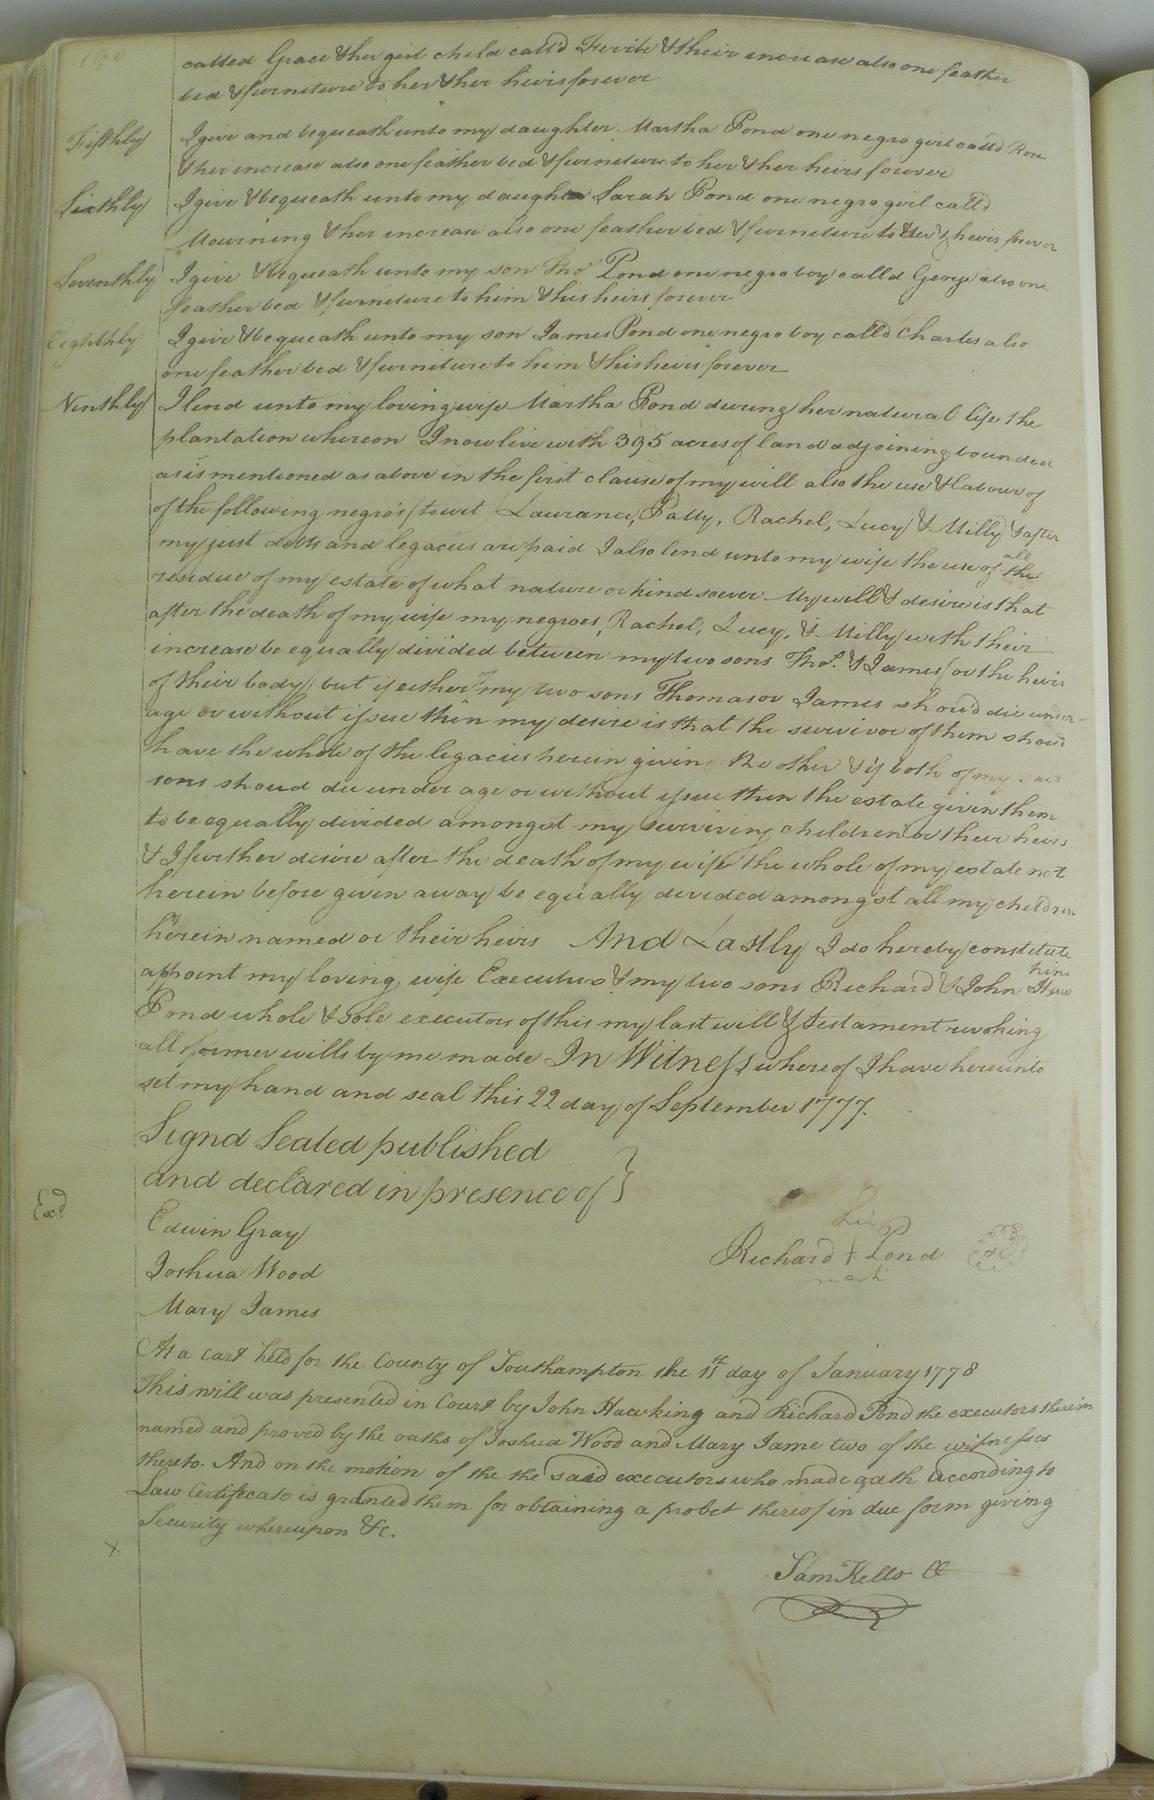 called Grace & her girl child call'd Feribe & their increase also one feather
bed & furniture to her & her heirs forever
Fifthly I give and bequeath unto my daughter Martha Pond one negro girl call'd Rose
& her increase also one feather bed & furniture to her & her heirs forever
Sixthly I give & bequeath unto my daughter Sarah Pond one negro girl call'd
Mourning & her increase also one feather bed & furniture to her & heirs forever
Seventhly I give & bequeath unto my son Tho.s Pond one negro boy call'd George also one
feather bed & furniture to him & his heirs forever
Eighthly I give & bequeath unto my son James Pond one negro boy call'd Charles also
one feather bed & furniture to him & his heirs forever
Ninthly I lend unto my loving wife Martha Pond during her natural life the
plantation whereon I now live with 395 acres of land adjoining bounded
as is mentioned as above in the first clause of my will also the use & labour of
of the following negro's (to wit) Laurance, Patty, Rachel, Lucy & Milly & after
my just debts and legacies are paid I also lend unto my wife the use of all the
residue of my estate of what nature or kind soever My will & desire is that
after the death of my wife my negroes, Rachel, Lucy, & Milly with their
increase be equally divided between my two sons Tho.s & James (or the heirs
of their body) but if either my two sons Thomas or James shoud die under
age or without issue then my desire is that the survivor of them shoud
have the whole of the legacies herein given the other & if both of my said
sons shoud die under age or without issue then the estate given them
to be equally divided amongst my surviving children or their heirs
& I further desire after the death of my wife the whole of my estate not
herein before given away be equally divided amongst all my children
herein named or their heirs And Lastly I do hereby constitute
appoint my loving wife Executrix & my two sons Richard & John Haw king
Pond whole & sole executors of this my last will & testament revoking
all former wills by me made In Witness whereof I have hereunto
set my hand and seal this 22 day of September 1777.
Signd Sealed published
and declared in presence of }
Exd
Edwin Gray
Joshua Wood
Mary James
his
Richard + Pond
mark
At a cart held for the County of Southampton the 11th day of January 1778
This will was presented in Court by John Hawking and Richard Pond the executors therein
named and proved by the oaths of Joshua Wood and Mary Jame two of the witnesses
thereto. And on the motion of the the said executors who made oath according to
Law Certificate is granted them for obtaining a probet thereof in due form giving
Security whereupon &c.
x
Sam Kello CC